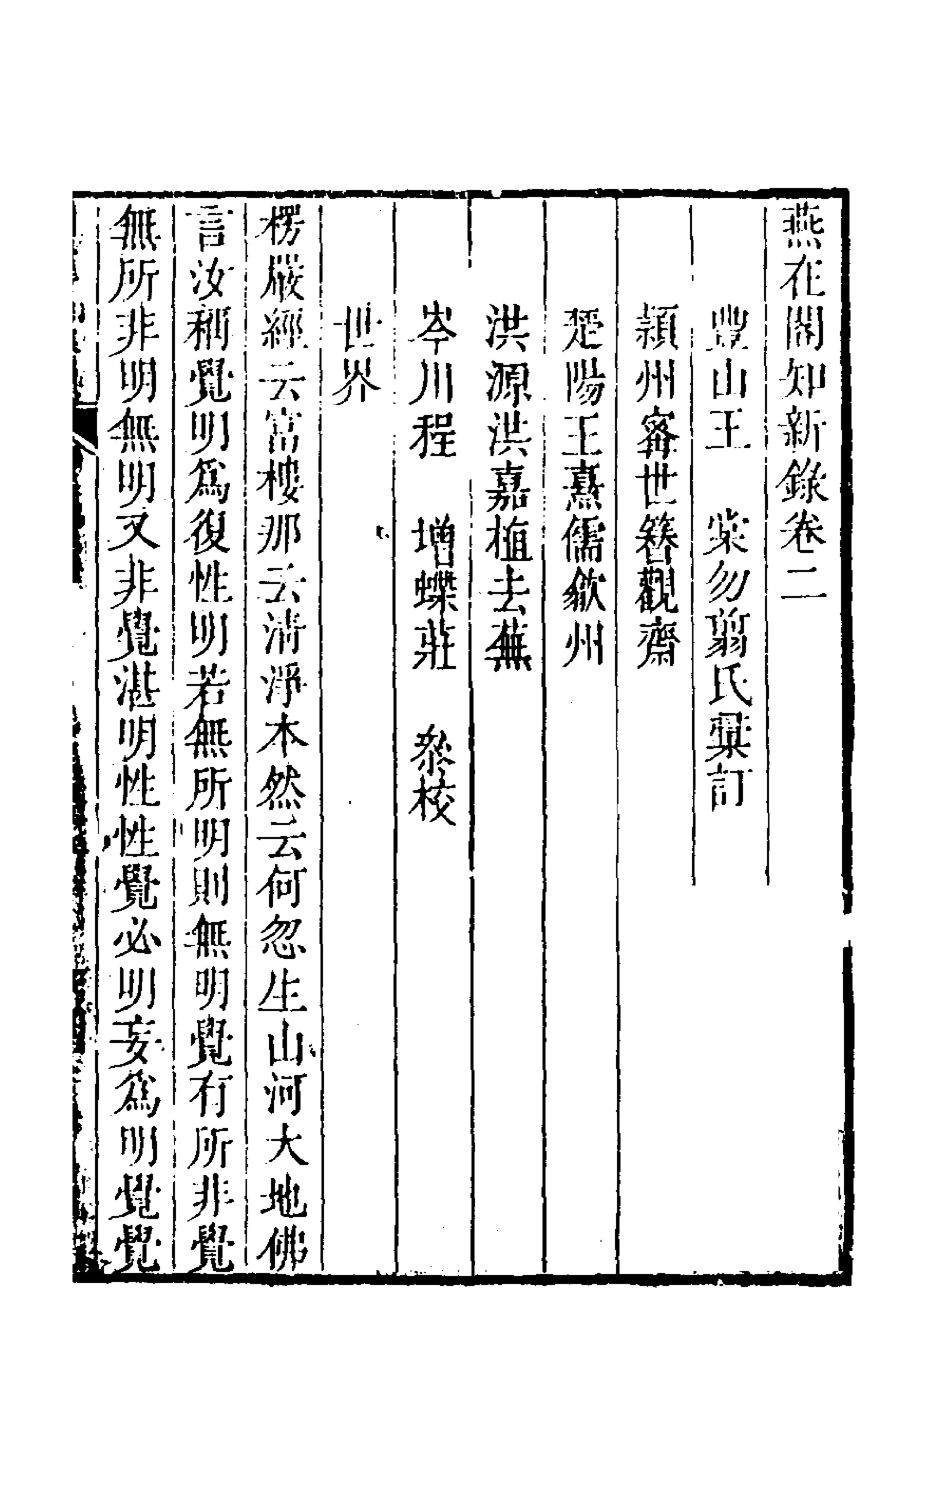 燕在閣知新錄卷二
豐山王　棠勿翦氏彙訂
潁州甯世簪觀齋
楚陽王熹儒歙州
洪源洪嘉植去蕪
岑川程　增蝶莊　叅校
世界
楞嚴經云富樓那云清淨本然云何忽生山河大地佛
言汝稱覺明為復性明若無所明則無明覺有所非覺
無所非明無明又非覺湛明性性覺必明妄為明覺覺